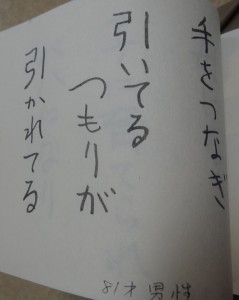 手をつなぎ
引いてる
つもりが
引かれてる
81才 男性